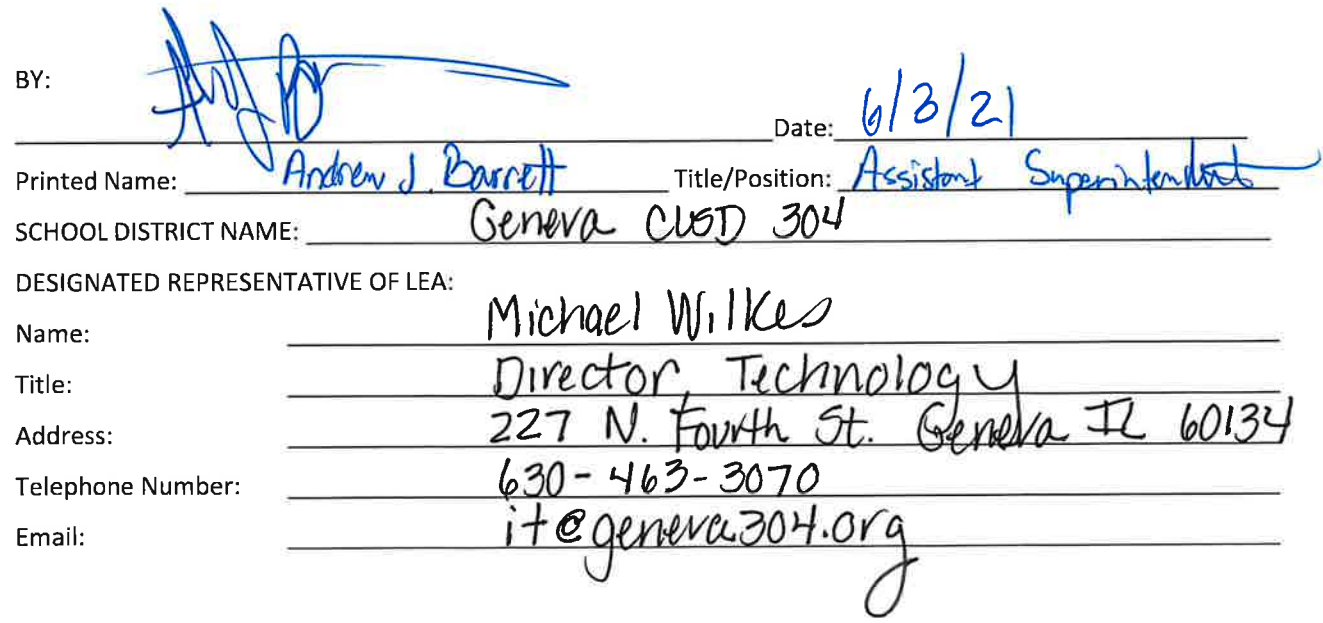 BY: Date: 6/3/21
Printed Name: Andrew J. Barrett Title/Position: Assistant Superintendent
SCHOOL DISTRICT NAME: Geneva CUSD 304
DESIGNATED REPRESENTATIVE OF LEA:
Name: Michael Wilkes
Title: Director, Technology
Address: 227 N. Fourth St. Geneva IL 60134
Telephone Number: 630-463-3070
Email: it@geneva304.org